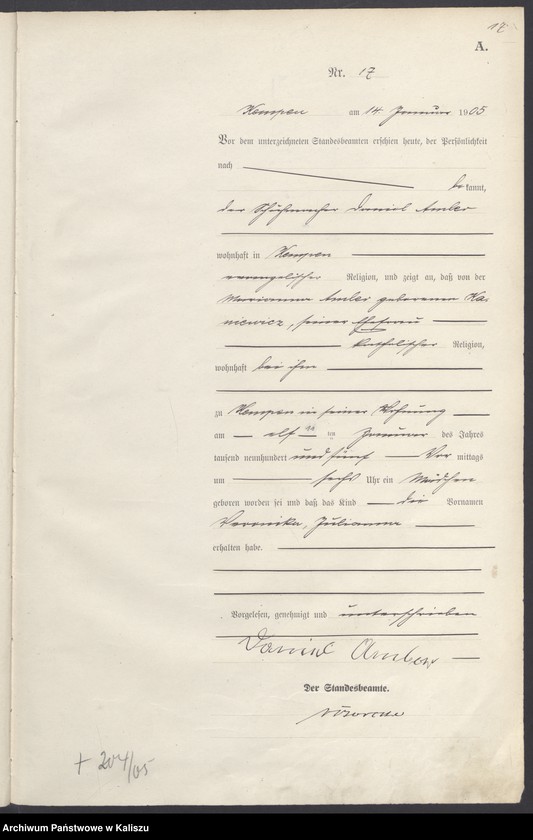 17
A.
Nr. 17
Kempen am 14. Januar 1905
Vor dem unterzeichneten Standesbeamten erschien heute, der Persönlichkeit
nach
be kannt,
der Schuhmacher Daniel Amler
wohnhaft in Kempen
evangelischer Religion, und zeigt an, daß von der
Marianna Amler geborenen Ka-
niewicz, seiner Ehefrau
katholischer Religion,
wohnhaft bei ihm
zu Kempen in seiner Wohnung
am elf ten Januar des Jahres
tausend neunhundert und fünf Vor mittags
um sechs Uhr ein Mädchen
geboren worden sei und daß das Kind die Vornamen
Veronika, Julianna
erhalten habe.
Vorgelesen, genehmigt und unterschrieben
Daniel Amler
Der Standesbeamte.
+ 204/05
Archiwum Państwowe w Kaliszu